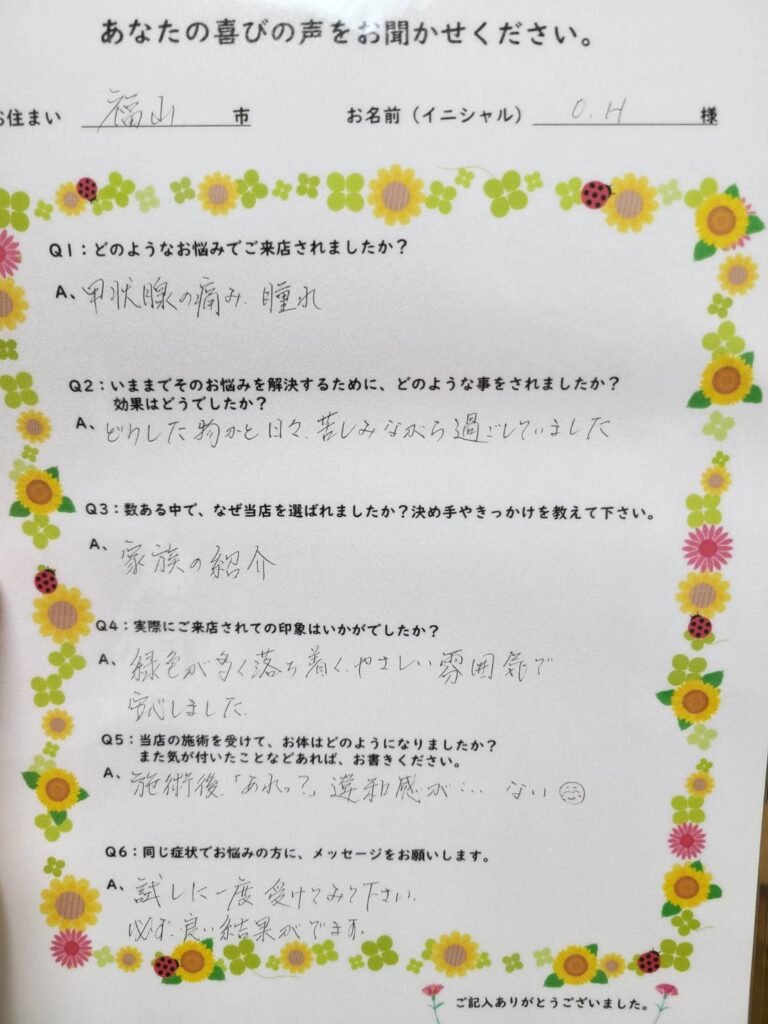 あなたの喜びの声をお聞かせください。
お住まい 福山 市 お名前（イニシャル） O.H 様
Q1：どのようなお悩みでご来店されましたか？
A、甲状腺の痛み、腫れ
Q2：いままでそのお悩みを解決するために、どのような事をされましたか？
効果はどうでしたか？
A、どうした物かと日々、苦しみながら過ごしていました
Q3：数ある中で、なぜ当店を選ばれましたか？決め手やきっかけを教えて下さい。
A、家族の紹介
Q4：実際にご来店されての印象はいかがでしたか？
A、緑色が多く落ち着く、やさしい雰囲気で
安心しました。
Q5：当店の施術を受けて、お体はどのようになりましたか？
また気が付いたことなどあれば、お書きください。
A、施術後、「あれっ？」違和感が… ない
Q6：同じ症状でお悩みの方に、メッセージをお願いします。
A、試しに一度受けてみて下さい。
必ず、良い結果がでます。
ご記入ありがとうございました。